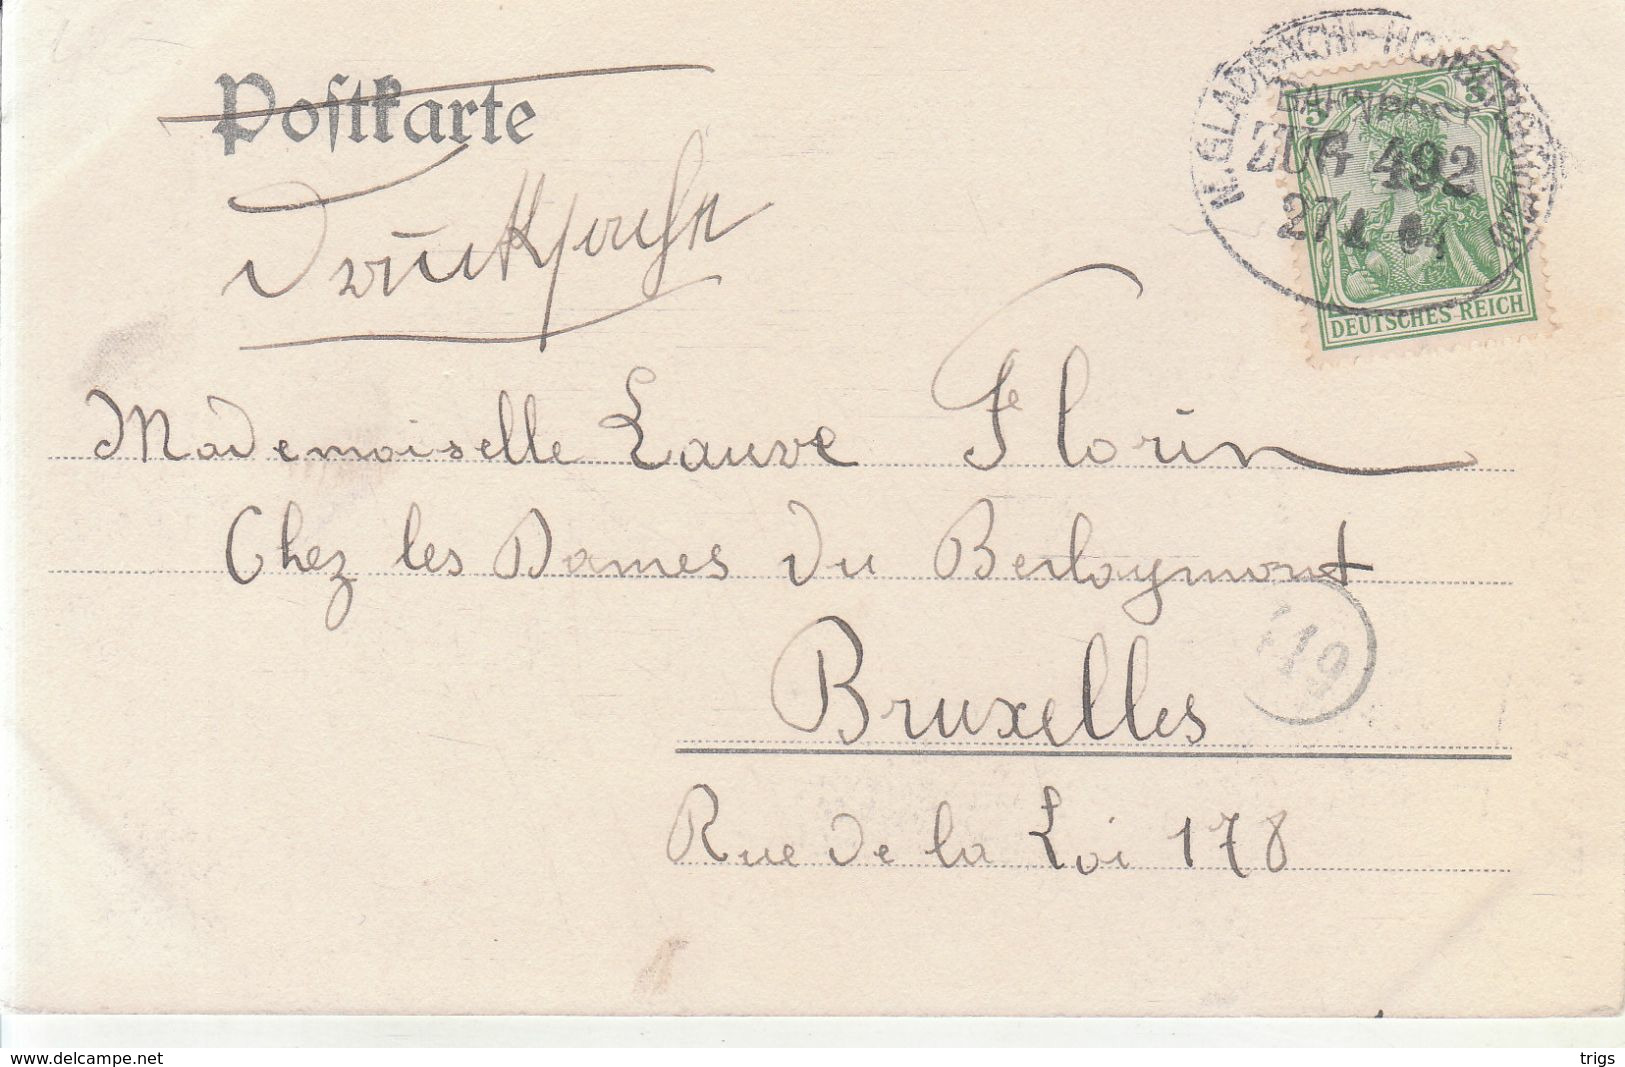 Postkarte
Drucksache
M. GLADBACH - HOMBERG
BAHNPOST
ZUG 492
27 04
5 5
DEUTSCHES REICH
Mademoiselle Laure Florin
Chez les Dames du Berlaymont
119
Bruxelles
Rue de la Loi 178
www.delcampe.net
trigs